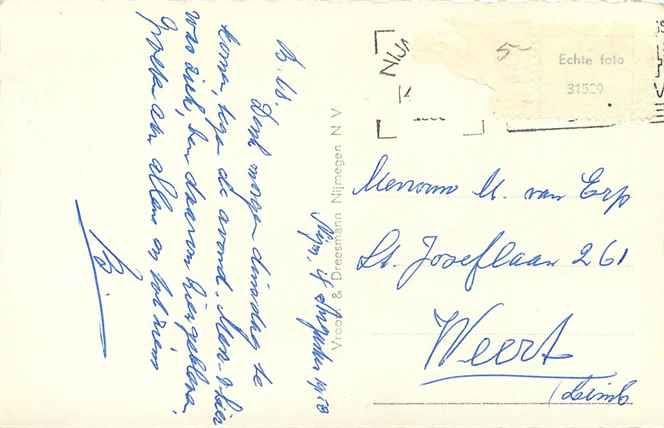 B. W.
Denk morgen dinsdag te
komen tegen de avond. Men
was ziek, ben daarom hier gebleven.
Groeten aan allen en tot ziens
Nijm,
1958
Vroom & Dreesmann Nijmegen N V
NIJM
5-
Echte foto
31529
Mevrouw M. van Erp
St. Joseflaan 261
Weert
(Limb